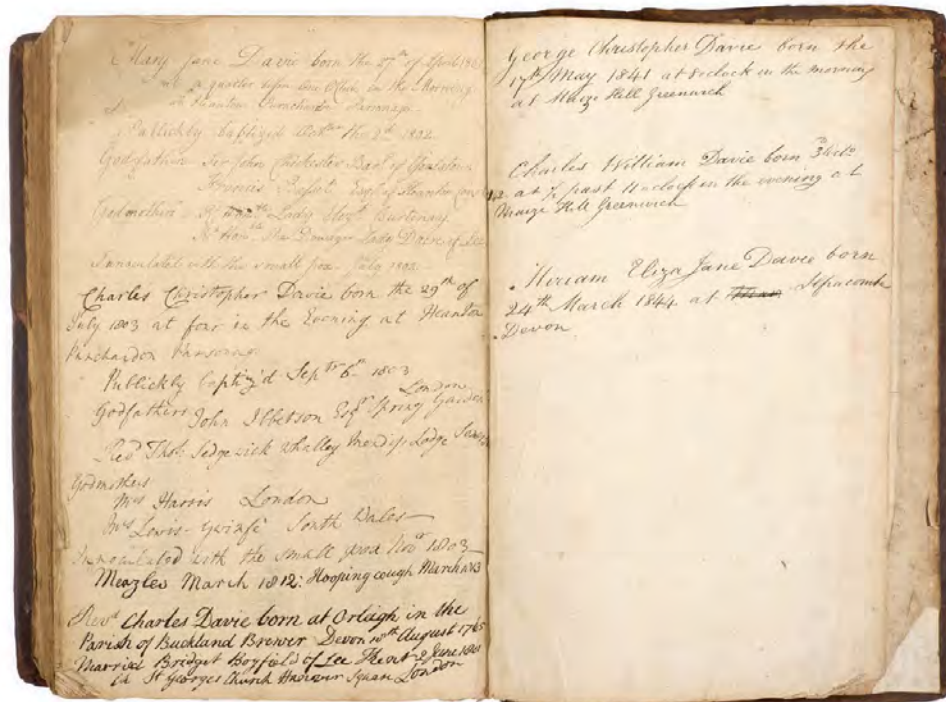 Mary Jane Davie born the 27th of April
at a quarter before one o'Clock in the Morning
at Heanton Punchardon Parsonage
Publickly baptized the 2d 1802
Godfathers Sir John Chichester Bart of
Francis Basset Esqr of Heanton
Godmothers Rt Lady Courtenay
Rt Honble Dowager Lady
Innoculated with the small pox July 1802
Charles Christopher Davie born the 29th of
July 1803 at four in the Evening at Heanton
Punchardon Parsonage
Publickly baptiz'd Septr 6th 1803
London
Godfathers John Ibbetson Esqr Spring Garden
Revd Thos: Sedgwick Whalley Mendip Lodge
Godmothers
Mrs Harris London
Mrs Lewis - South Wales
Innoculated with the small pox Novr 1803
Meazles March 1812: Hooping cough March 1813
Revd Charles Davie born at Orleigh in the
Parish of Buckland Brewer Devon 10th August 1765
Married Bridget Boyfield of Lee Kent 2 June
in St Georges Church Hanover Square London
George Christopher Davie born the
17th May 1841 at 8 oclock in the morning
at Maize Hill Greenwich
Charles William Davie born
at ½ past 11 oclock in the evening at
Maize Hill Greenwich
Miriam Eliza Jane Davie born
24th March 1844 at Ilfracombe
Devon